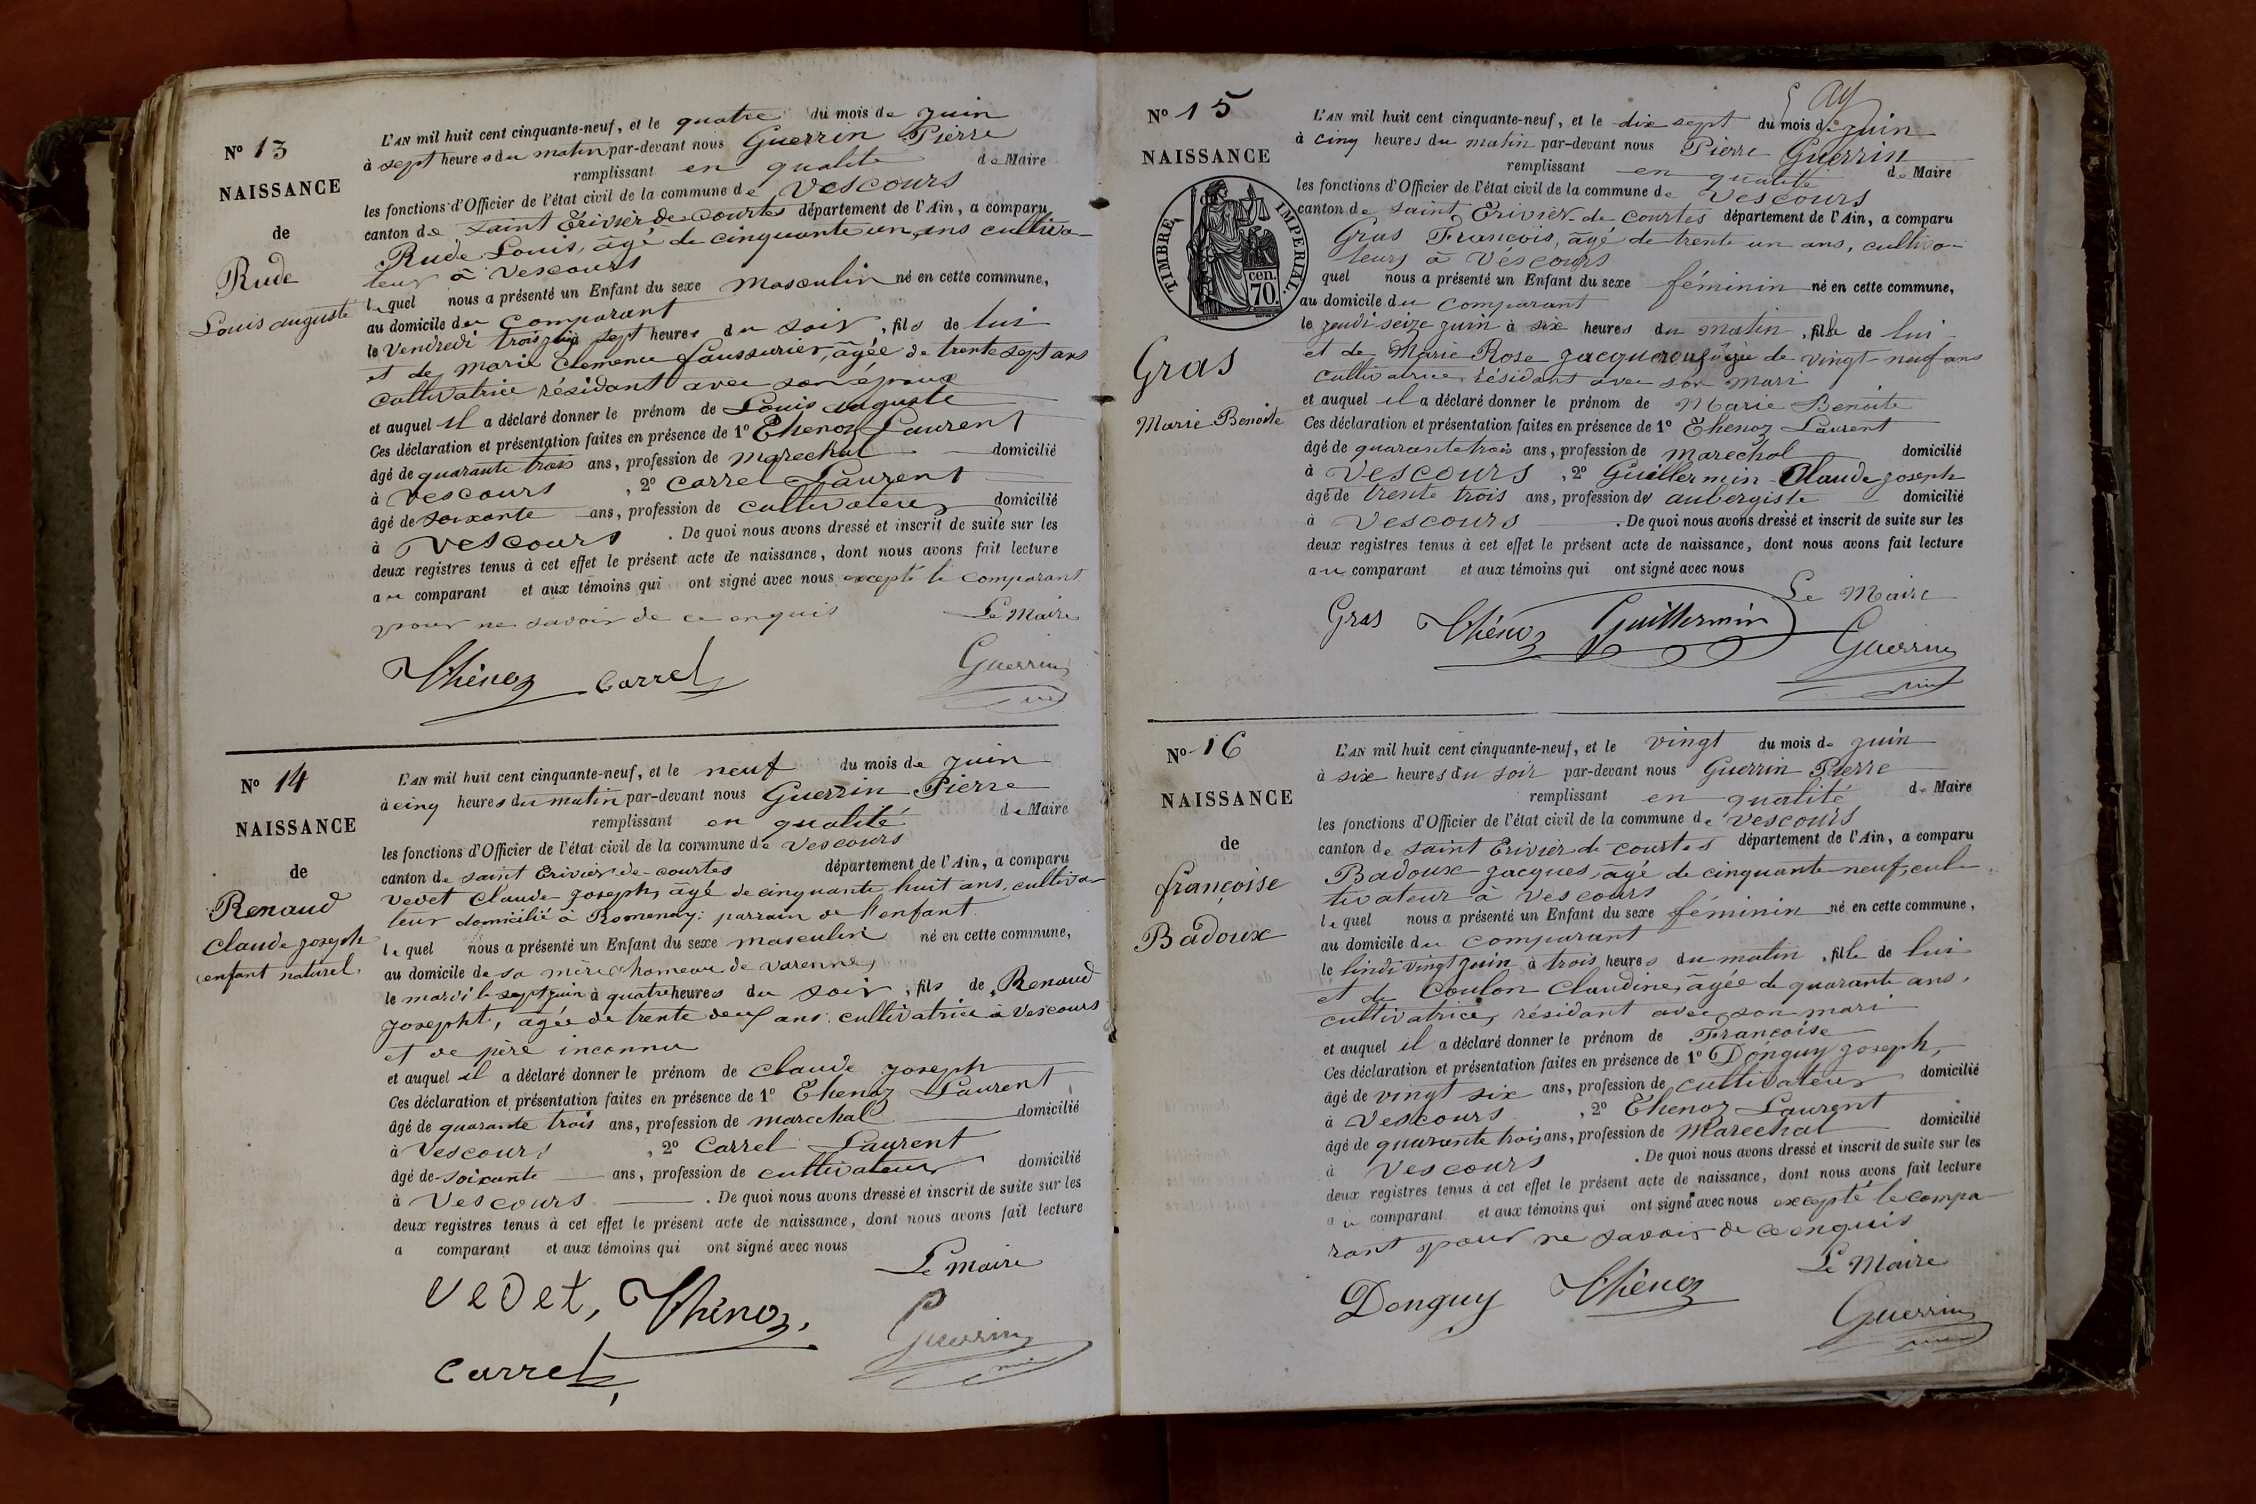 N° 13
NAISSANCE
de
Rude
Louis auguste
L'AN mil huit cent cinquante-neuf, et le quatre du mois de juin
à sept heures du matin par-devant nous Guerrin Pierre
remplissant en qualité de Maire
les fonctions d'Officier de l'état civil de la commune de Vescours
canton de saint Trivier de courtes département de l'Ain, a comparu
Rude Louis, âgé de cinquante un ans cultiva-
teur à Vescours
lequel nous a présenté un Enfant du sexe masculin né en cette commune,
au domicile du comparant
le Vendredi trois juin sept heures du soir, fils de lui
et de marie Clemence, âgée de trente sept ans
cultivatrice résidant avec son époux
et auquel il a déclaré donner le prénom de Louis auguste
Ces déclaration et présentation faites en présence de 1° Thenoz Laurent
âgé de quarante trois ans, profession de marechal domicilié
à Vescours, 2° Carrel Laurent
âgé de soixante ans, profession de cultivateur domicilié
à Vescours. De quoi nous avons dressé et inscrit de suite sur les
deux registres tenus à cet effet le présent acte de naissance, dont nous avons fait lecture
au comparant et aux témoins qui ont signé avec nous excepté le comparant
pour ne savoir de ce enquis Le Maire
Thénoz Carrel Guerrin
N° 14
NAISSANCE
de
Renaud
Claude joseph
enfant naturel
L'AN mil huit cent cinquante-neuf, et le neuf du mois de juin
à cinq heures du matin par-devant nous Guerrin Pierre
remplissant en qualité de Maire
les fonctions d'Officier de l'état civil de la commune de Vescours
canton de saint Trivier de courtes département de l'Ain, a comparu
Vedet Claude joseph, âgé de cinquante huit ans, cultiva-
teur domicilié à Romenay: parrain de l'enfant
lequel nous a présenté un Enfant du sexe masculin né en cette commune,
au domicile de sa mère hameau de Varennes
le mardi le sept juin à quatre heures du soir, fils de Renaud
josepht, agée de trente deux ans cultivatrice à Vescours
et de père inconnu
et auquel il a déclaré donner le prénom de Claude joseph
Ces déclaration et présentation faites en présence de 1° Thenoz Laurent
âgé de quarante trois ans, profession de marechal domicilié
à Vescours, 2° Carrel Laurent
âgé de soixante ans, profession de cultivateur domicilié
à Vescours. De quoi nous avons dressé et inscrit de suite sur les
deux registres tenus à cet effet le présent acte de naissance, dont nous avons fait lecture
a comparant et aux témoins qui ont signé avec nous
Le Maire
Vedet, Thénoz,
Guerrin
Carrel,
N° 15
NAISSANCE
TIMBRE IMPERIAL
70 cen.
Gras
Marie Benoite
L'AN mil huit cent cinquante-neuf, et le dix sept du mois de juin
à cinq heures du matin par-devant nous Pierre Guerrin
remplissant en qualité de Maire
les fonctions d'Officier de l'état civil de la commune de Vescours
canton de saint Trivier de courtes département de l'Ain, a comparu
Gras François, âgé de trente un ans, cultiva-
teurs à Vescours
quel nous a présenté un Enfant du sexe féminin né en cette commune,
au domicile du comparant
le jeudi seize juin à six heures du matin, fille de lui
et de Marie Rose âgée de vingt-neuf ans
cultivatrice résidant avec son mari
et auquel il a déclaré donner le prénom de Marie Benoite
Ces déclaration et présentation faites en présence de 1° Thenoz Laurent
âgé de quarante trois ans, profession de marechal domicilié
à Vescours, 2° Guillermin Claude joseph
âgé de trente trois ans, profession de aubergiste domicilié
à Vescours. De quoi nous avons dressé et inscrit de suite sur les
deux registres tenus à cet effet le présent acte de naissance, dont nous avons fait lecture
au comparant et aux témoins qui ont signé avec nous
Le Maire
Gras Thénoz Guillermin
Guerrin
N° 16
NAISSANCE
de
françoise
Badoux
L'AN mil huit cent cinquante-neuf, et le vingt du mois de juin
à six heures du soir par-devant nous Guerrin Pierre
remplissant en qualité de Maire
les fonctions d'Officier de l'état civil de la commune de Vescours
canton de saint Trivier de courtes département de l'Ain, a comparu
Badoux jacques, âgé de cinquante neuf, cul-
tivateur à Vescours
lequel nous a présenté un Enfant du sexe féminin né en cette commune,
au domicile du comparant
le lindi vingt juin à trois heures du matin, fille de lui
et de Coulon Claudine, âgée de quarante ans,
cultivatrice, résidant avec son mari
et auquel il a déclaré donner le prénom de Françoise
Ces déclaration et présentation faites en présence de 1° Donguy joseph,
âgé de vingt six ans, profession de cultivateur domicilié
à Vescours, 2° Thenoz Laurent
âgé de quarante trois ans, profession de Marechal domicilié
à Vescours. De quoi nous avons dressé et inscrit de suite sur les
deux registres tenus à cet effet le présent acte de naissance, dont nous avons fait lecture
au comparant et aux témoins qui ont signé avec nous excepté le compa-
rant pour ne savoir de ce enquis
Le Maire
Donguy Thénoz
Guerrin